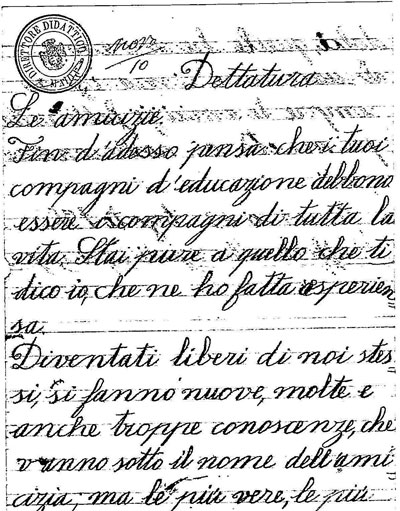 DIRETTORE DIDATTICO
10
Dettatura
Le amicizie.
Fin d'adesso pensa che i tuoi
compagni d'educazione debbono
essere i compagni di tutta la
vita. Stai pure a quello che ti
dico io, che ne ho fatta esperien
sa.
Diventati liberi di noi stes
si, si fanno nuove, molte e
anche troppe conoscenze, che
vanno sotto il nome dell'ami
cizia, ma le più vere, le più